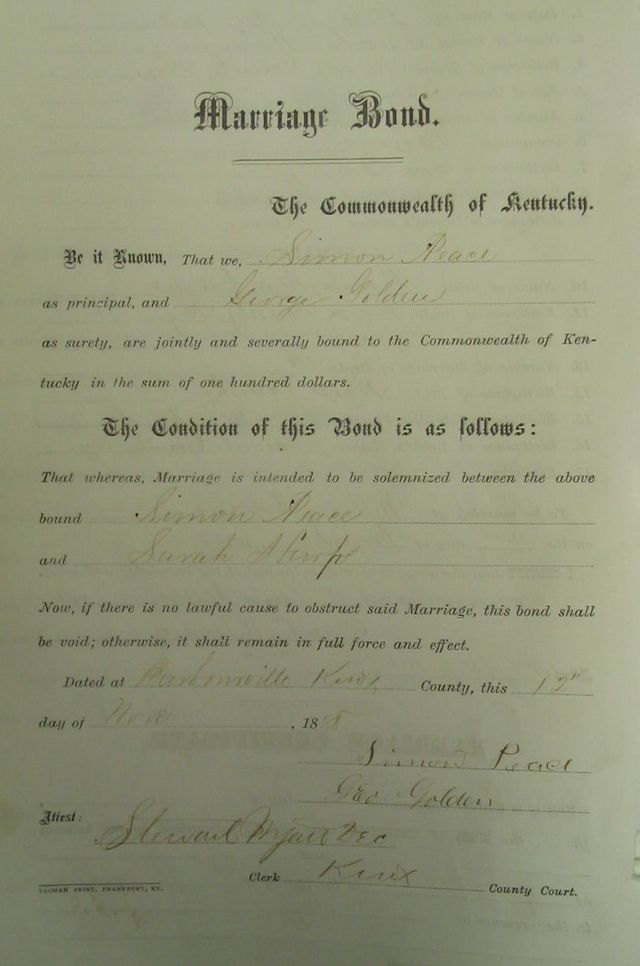 Marriage Bond.
The Commonwealth of Kentucky.
Be it Known, That we, Simon Peace
as principal, and George Golden
as surety, are jointly and severally bound to the Commonwealth of Ken-
tucky in the sum of one hundred dollars.
The Condition of this Bond is as follows:
That whereas, Marriage is intended to be solemnized between the above
bound Simon Peace
and Sarah
Now, if there is no lawful cause to obstruct said Marriage, this bond shall
be void; otherwise, it shall remain in full force and effect.
Dated at Barbourville Knox County, this 12"
day of Nove , 188
Simon Peace
Geo Golden
Attest:
Stewart Wyatt
Clerk Knox County Court.
YEOMAN PRINT, FRANKFORT, KY.